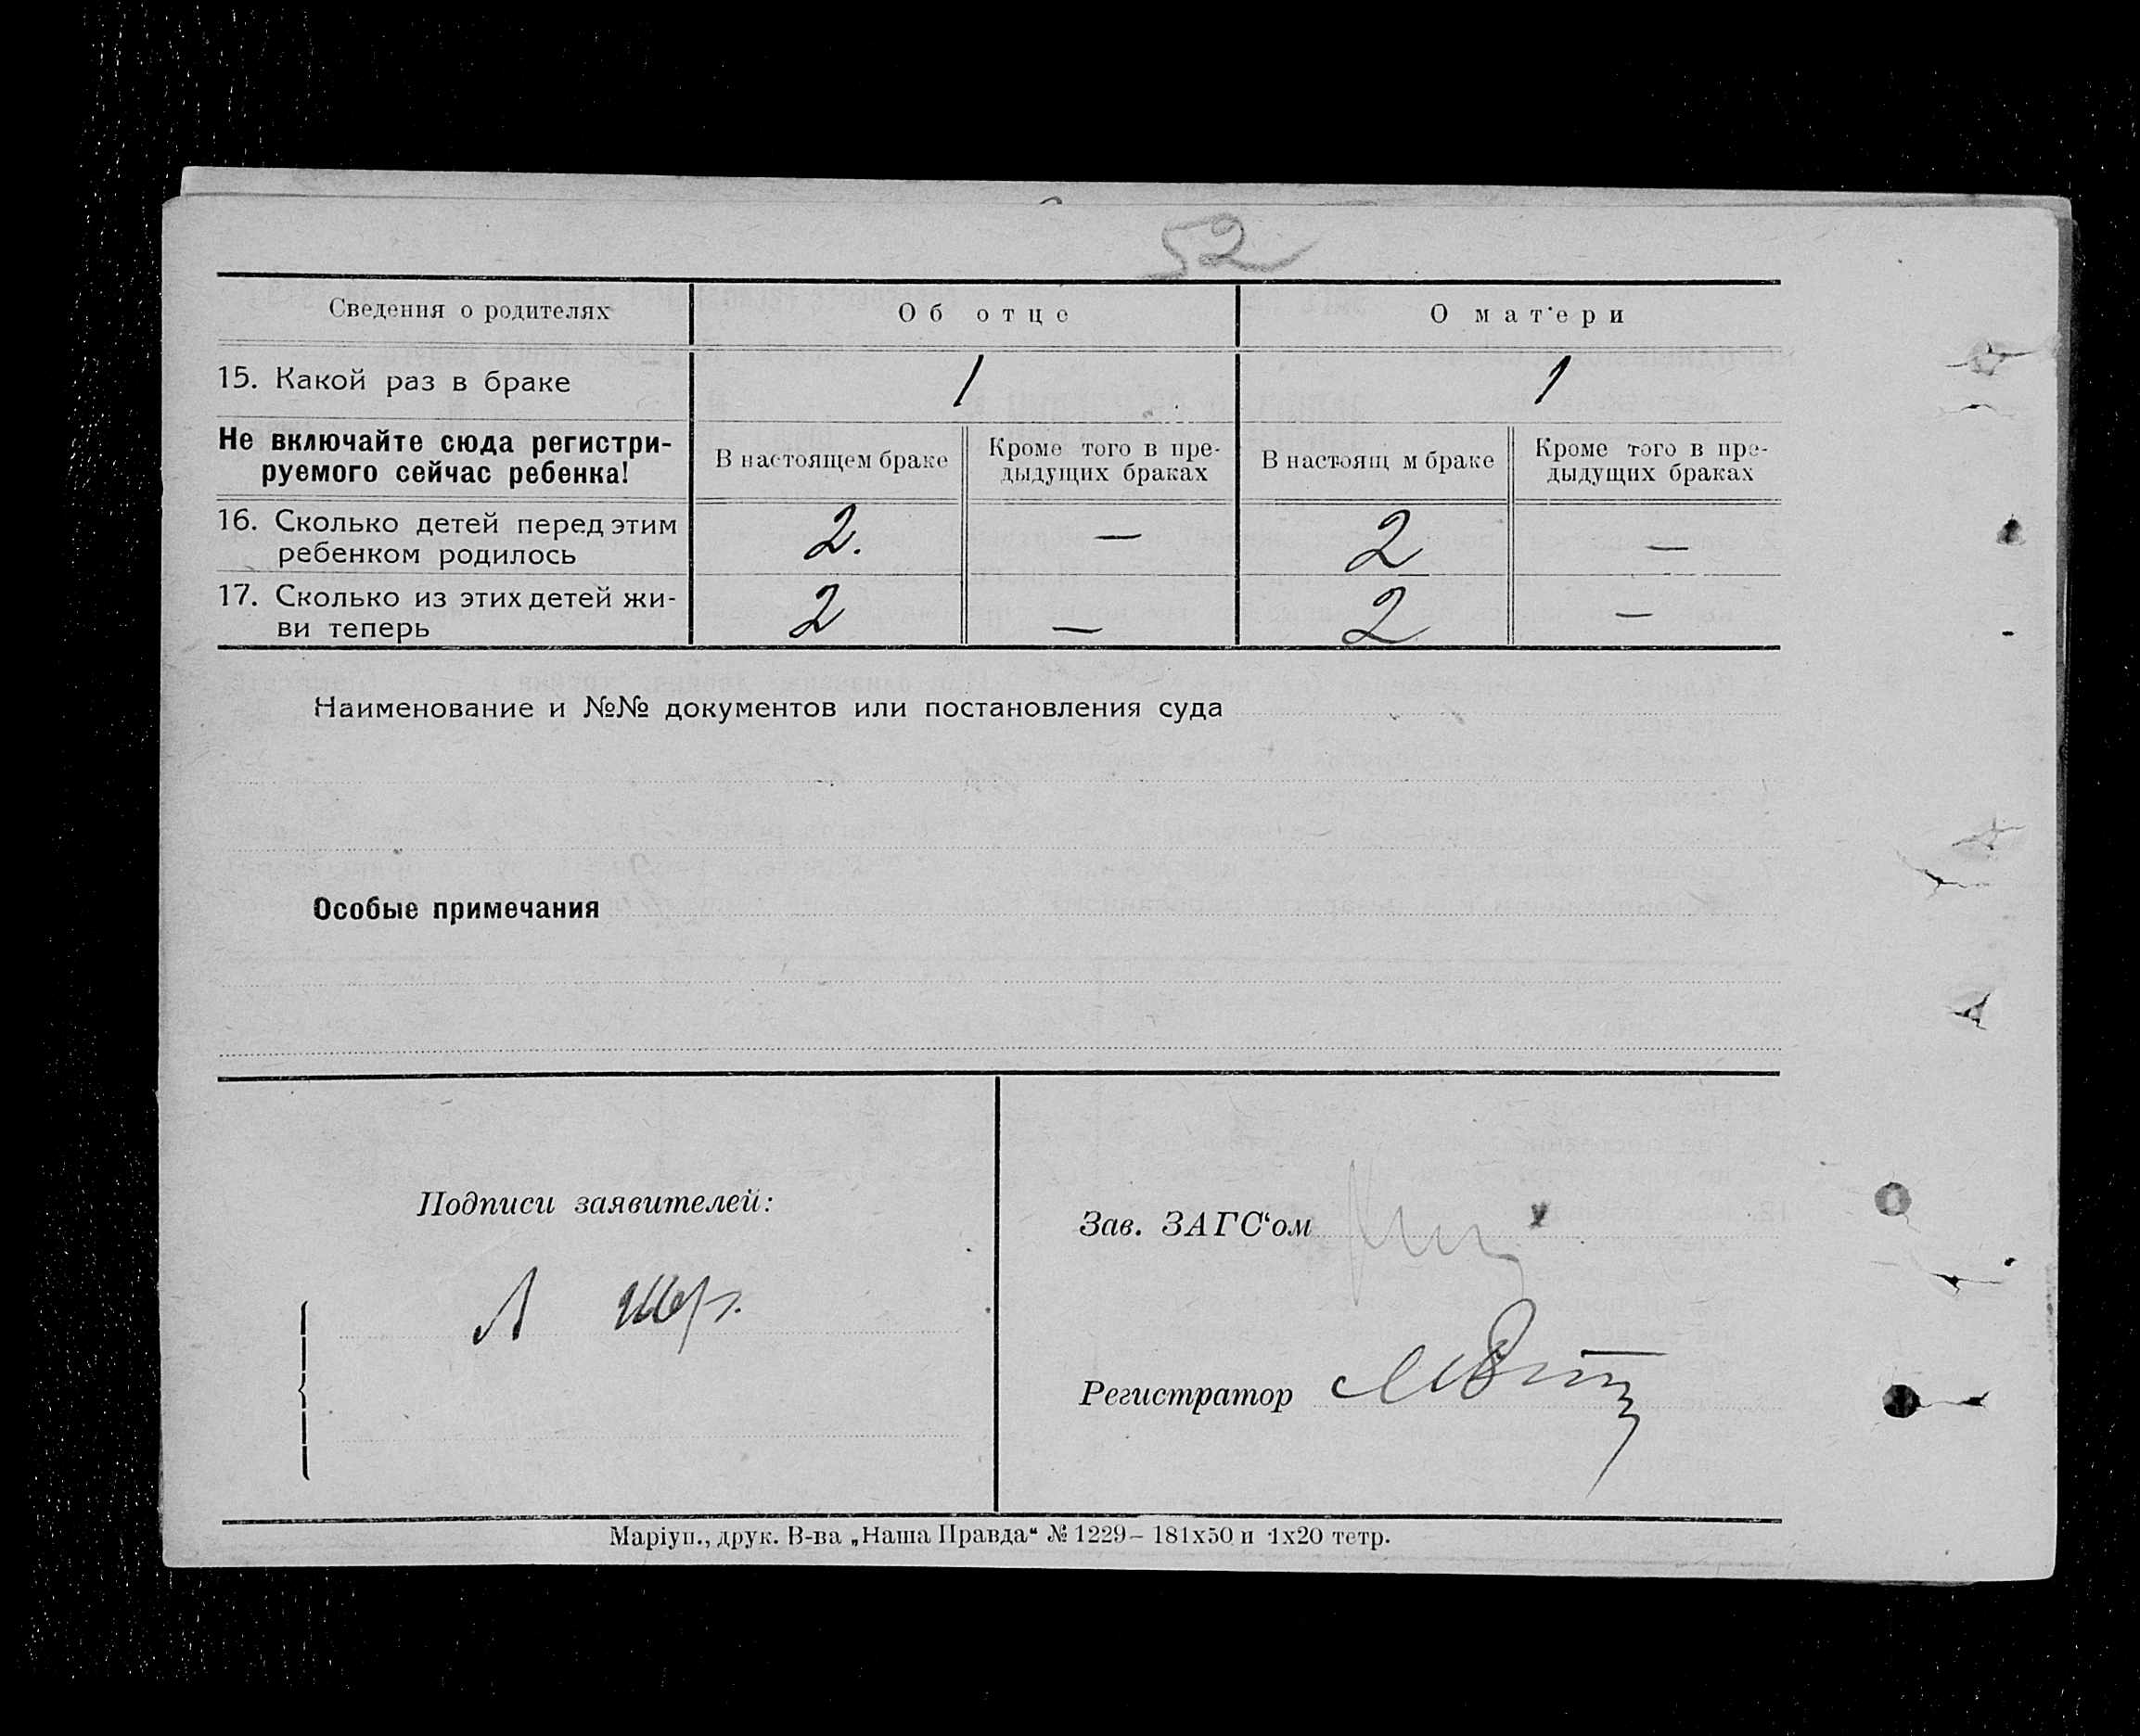 52
Сведения о родителях Об отце О матери
15. Какой раз в браке 1 1
Не включайте сюда регистри-
руемого сейчас ребенка!
В настоящем браке
Кроме того в пре-
дыдущих браках
В настоящ м браке
Кроме того в пре-
дыдущих браках
16. Сколько детей перед этим
ребенком родилось 2. — 2 —
17. Сколько из этих детей жи-
ви теперь 2 — 2 —
Наименование и №№ документов или постановления суда
Особые примечания
Подписи заявителей:
Зав. ЗАГС‘ом
Регистратор
Маріуп., друк. В-ва „Наша Правда“ № 1229– 181х50 и 1х20 тетр.